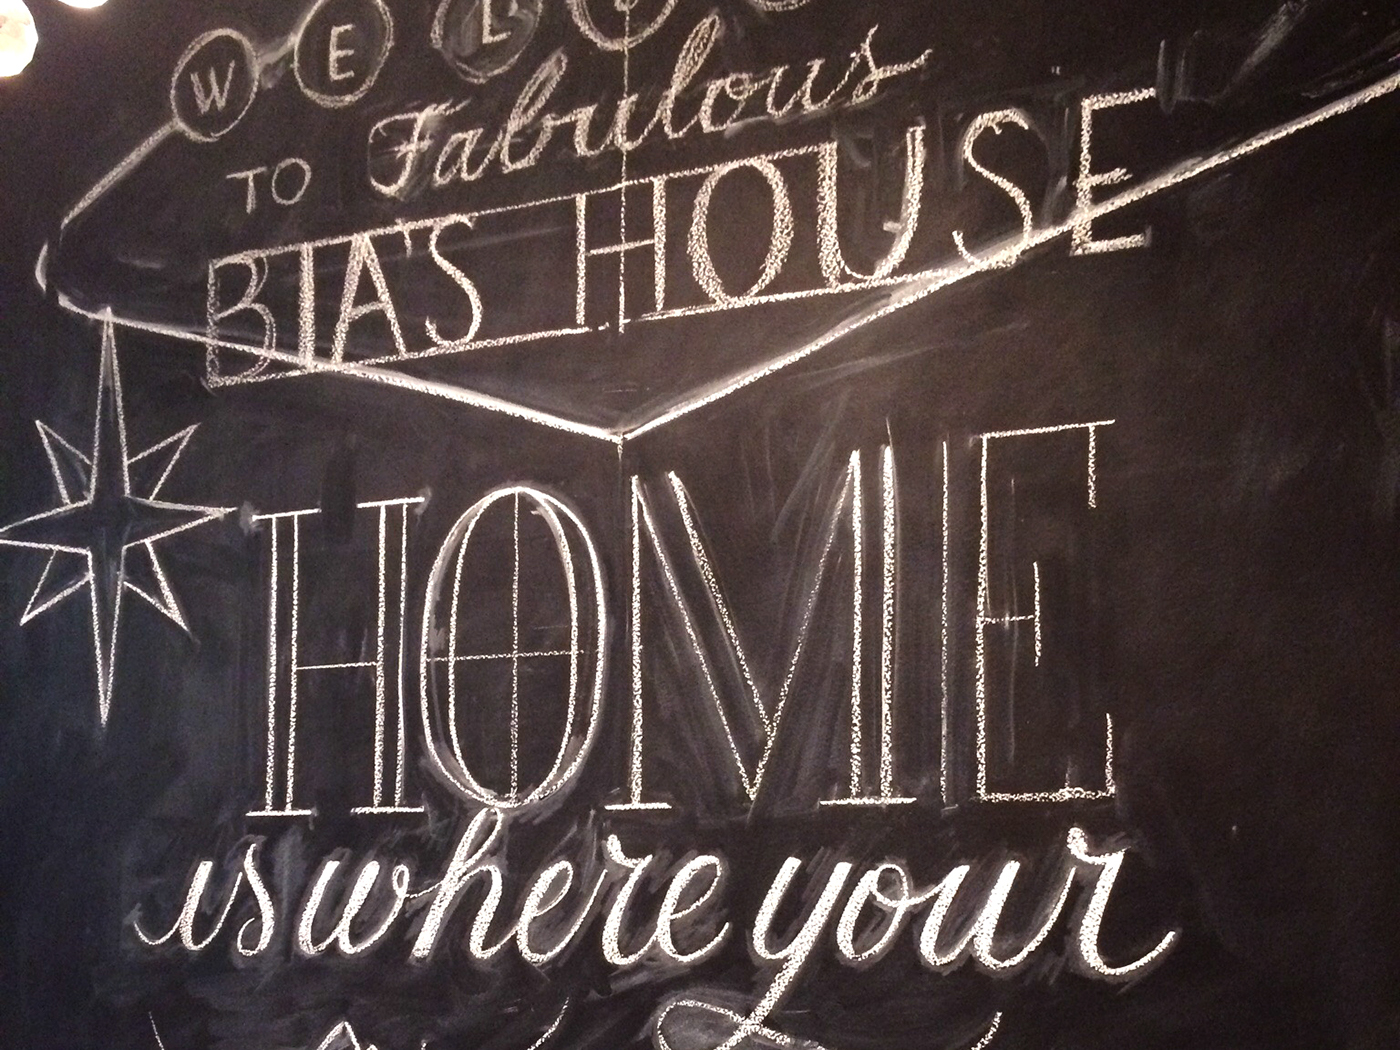 WEL
TO Fabulous
BIA'S HOUSE
HOME
is where your